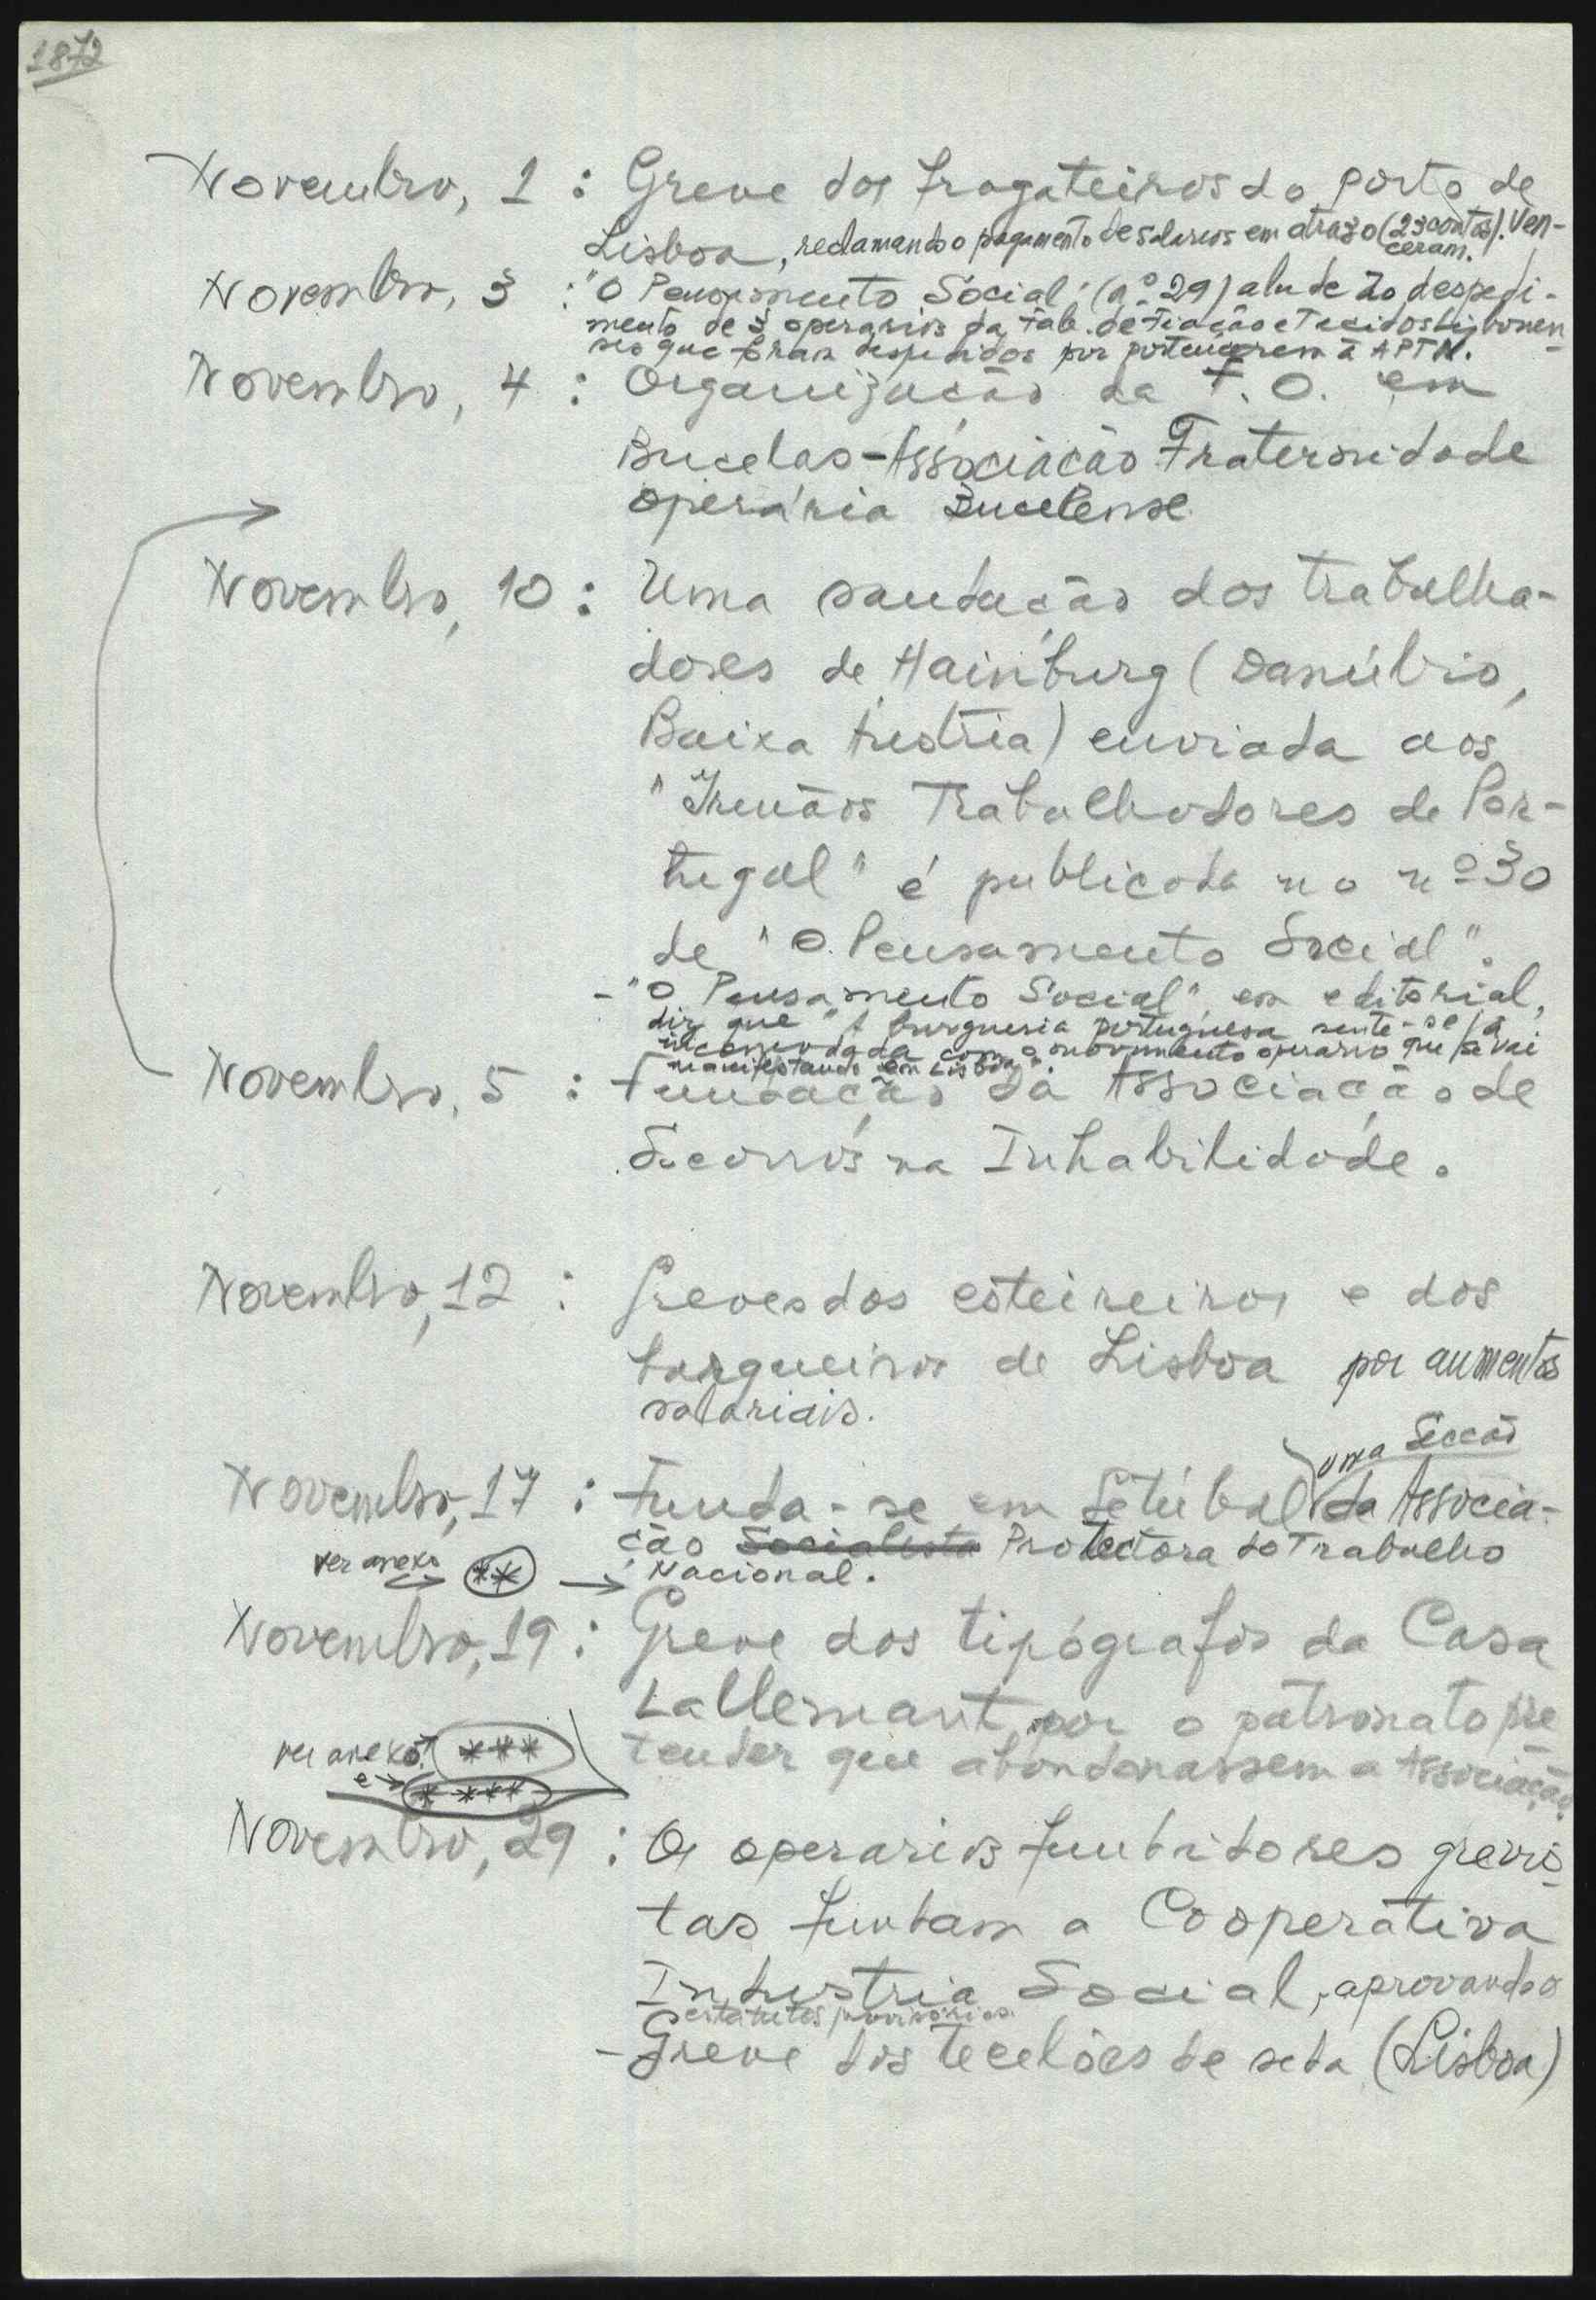 1872
Novembro, 1 : Greve dos fragateiros do porto de
Lisboa, reclamando o pagamento de salarios em atrazo (23 contos). Ven-
ceram.
Novembro, 3 : "O Pensamento Social" (nº 29) alude ao despedi-
mento de 3 operarios da Fab. de Fiação e Tecidos Lisbonen-
ses que foram despedidos por pertencerem à APTN.
Novembro, 4 : Organização da F. O. em
Bucelas - Associação Fraternidade
operária Bucelense
Novembro, 10 : Uma saudação dos trabalha-
dores de Hainburg (Danúbio,
Baixa Áustria) enviada aos
"Irmãos Trabalhadores de Por-
tugal" é publicada no nº 30
de "O Pensamento Social".
- "O Pensamento Social", em editorial,
diz que "A burguesia portuguesa sente-se já
incomodada com o movimento operario que se vai
manifestando em Lisboa".
Novembro, 5 : Fundação da Associação de
Socorros na Inhabilidade.
Novembro, 12 : Greves dos esteireiros e dos
fragueiros de Lisboa por aumentos
salariais.
uma Secção
Novembro, 17 : Funda-se em Setúbal da Associa-
ção Socialista Protectora do Trabalho
ver anexo ** → Nacional.
Novembro, 19 : Greve dos tipógrafos da Casa
Lallemant, por o patronato pre-
ver anexos *** tender que abandonassem a Associação
e → ****
Novembro, 29 : Os operarios fundidores grevis-
tas fundam a Cooperativa
Industria Social, aprovando o
estatutos provisórios.
- Greve dos tecelões de seda (Lisboa)